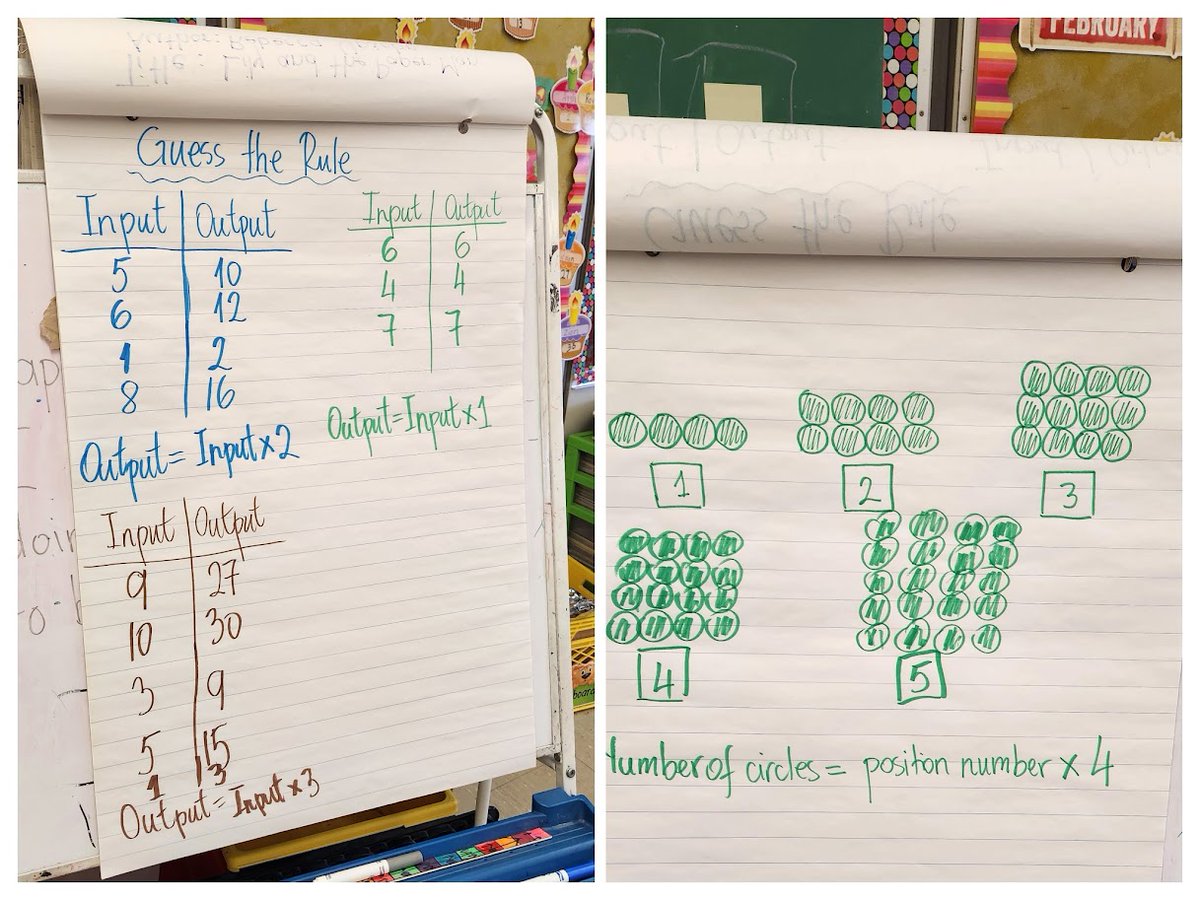 Title: Lily and the Paper Man
Guess the Rule
Input | Output
5 | 10
6 | 12
1 | 2
8 | 16
Output= Input×2
Input | Output
6 | 6
4 | 4
7 | 7
Output=Input×1
Input | Output
9 | 27
10 | 30
3 | 9
5 | 15
1 | 3
Output= Input×3
FEBRUARY
Guess the Rule
1
2
3
4
5
umber of circles= position number × 4